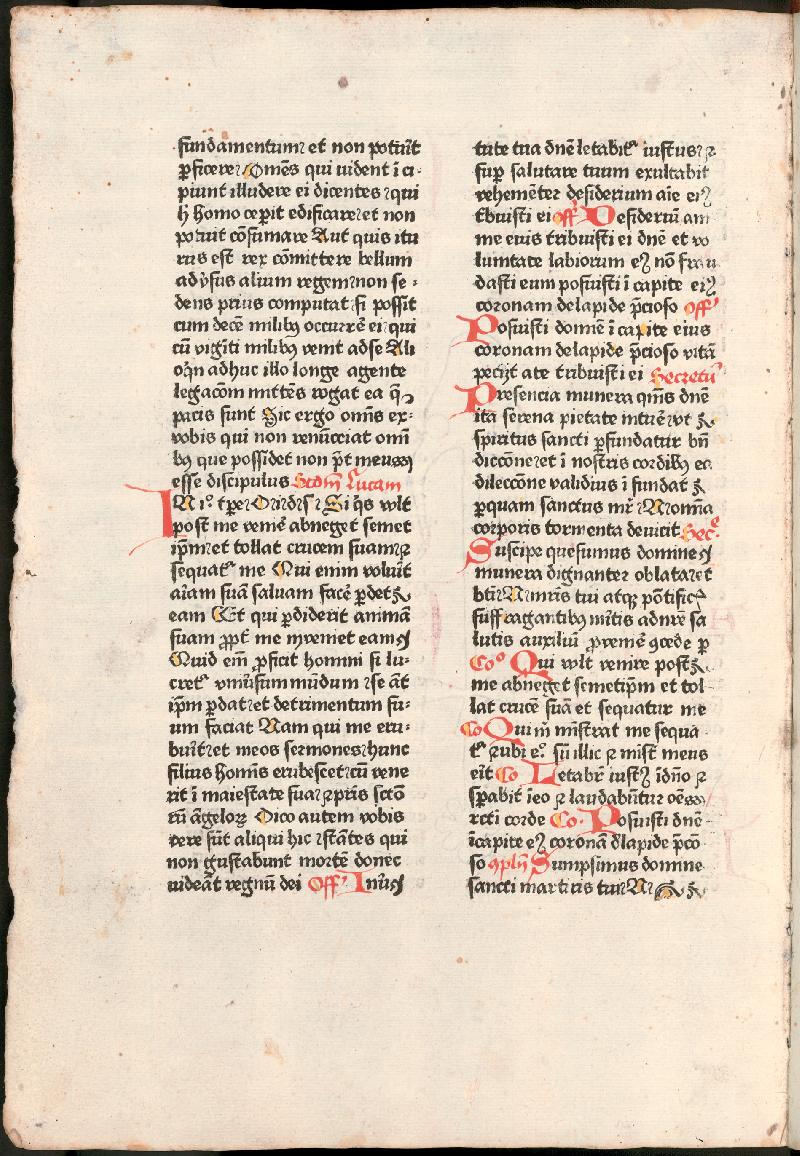 fundamentum et non potuīt
ꝑficere Om̄es qui uident ī ci-
piunt illudere ei dicentes qui
h̄ homo cepit edificare et non
potuit cōsumare Aut quis itu
rus est rex cōmittere bellum
adv̄sus alium regem non se-
dens prius computat si possit
cum decē milibꝰ occurrē ei qui
cū viginti milibꝰ venit ad se Ali
oq̄n adhuc illo longe agente
legacōm mittēs rogat ea q̄
pacis sunt Sic ergo om̄s ex-
vobis qui non renūcciat om̄i
bꝰ que possidet non p̄t meus
esse discipulus Scdm̄ Lucam
IN iº tꝑe Si q̄s vult
post me venīe abneget semet
ip̄m et tollat crucem suam ꝛ
sequatꝰ me Qui enim voluīt
aīam suā saluam facē ꝑdet
eam Et qui ꝑdiderit animā
suam ꝓpt̄ me inveniet eam
Quid em̄ ꝓficit homini si lu-
cretꝰ vniūsum mūdum se āt
ip̄m ꝑdat et detrimentum su-
um faciat Nam qui me eru-
buīt et meos sermones hunc
filius hom̄s erubescet cū vene
rit ī maiestate sua ꝛ pr̄is sctō
rū āgeloꝝ Dico autem vobis
vere sūt aliqui hic stātes qui
non gustabunt mortē donec
uideāt regnū dei Offꝰ In uir
tute tua dn̄e letabitꝰ iustus ꝛ
suꝑ salutare tuum exultabit
vehemēter desiderium aīe eiꝰ
tbuisti ei off Desideriū ani
me eius tribuisti ei dn̄e et vo
luntate labiorum eꝰ nō frau
dasti eum posuisti ī capite eiꝰ
coronam de lapide p̄cioso Off
Posuisti domīe ī capite eius
coronam de lapide p̄cioso vitā
pecijt a te tribuisti ei Secretū
Presencia munera qm̄s dn̄e
ita serena pietate intuē vt
spiritus sancti ꝑfundatur bn̄
diccōne et ī nostris cordibꝰ ea
dileccōne validius ī fundat
ꝑ quam sanctus mr̄ N omnia
corporis tormenta deuicit Sec
Suscipe quesumus domine
munera dignanter oblata et
bt̄i N mr̄is tui atqꝫ pōtific
suffragantibꝰ mītis ad nr̄e sa
lutis auxiliū ꝓvenīe ꝯcede ꝑ
Coº Qui vult venire post
me abneget semetip̄m et tol
lat crucē suā et sequatur me
Co Qui m̄ mīstrat me sequa
tꝰ ꝛ ubi eº sū illic ꝛ mīst meus
eīt Co Letabr̄ iustꝰ ī dn̄o ꝛ
sꝑabit ī eo ꝛ laudabūtur oēs
recti corde Co Posuisti dn̄e
ī capite eꝰ coronā d̄ lapide p̄cō
so ꝯpln̄ Sumpsimus domine
sancti martiris tui N